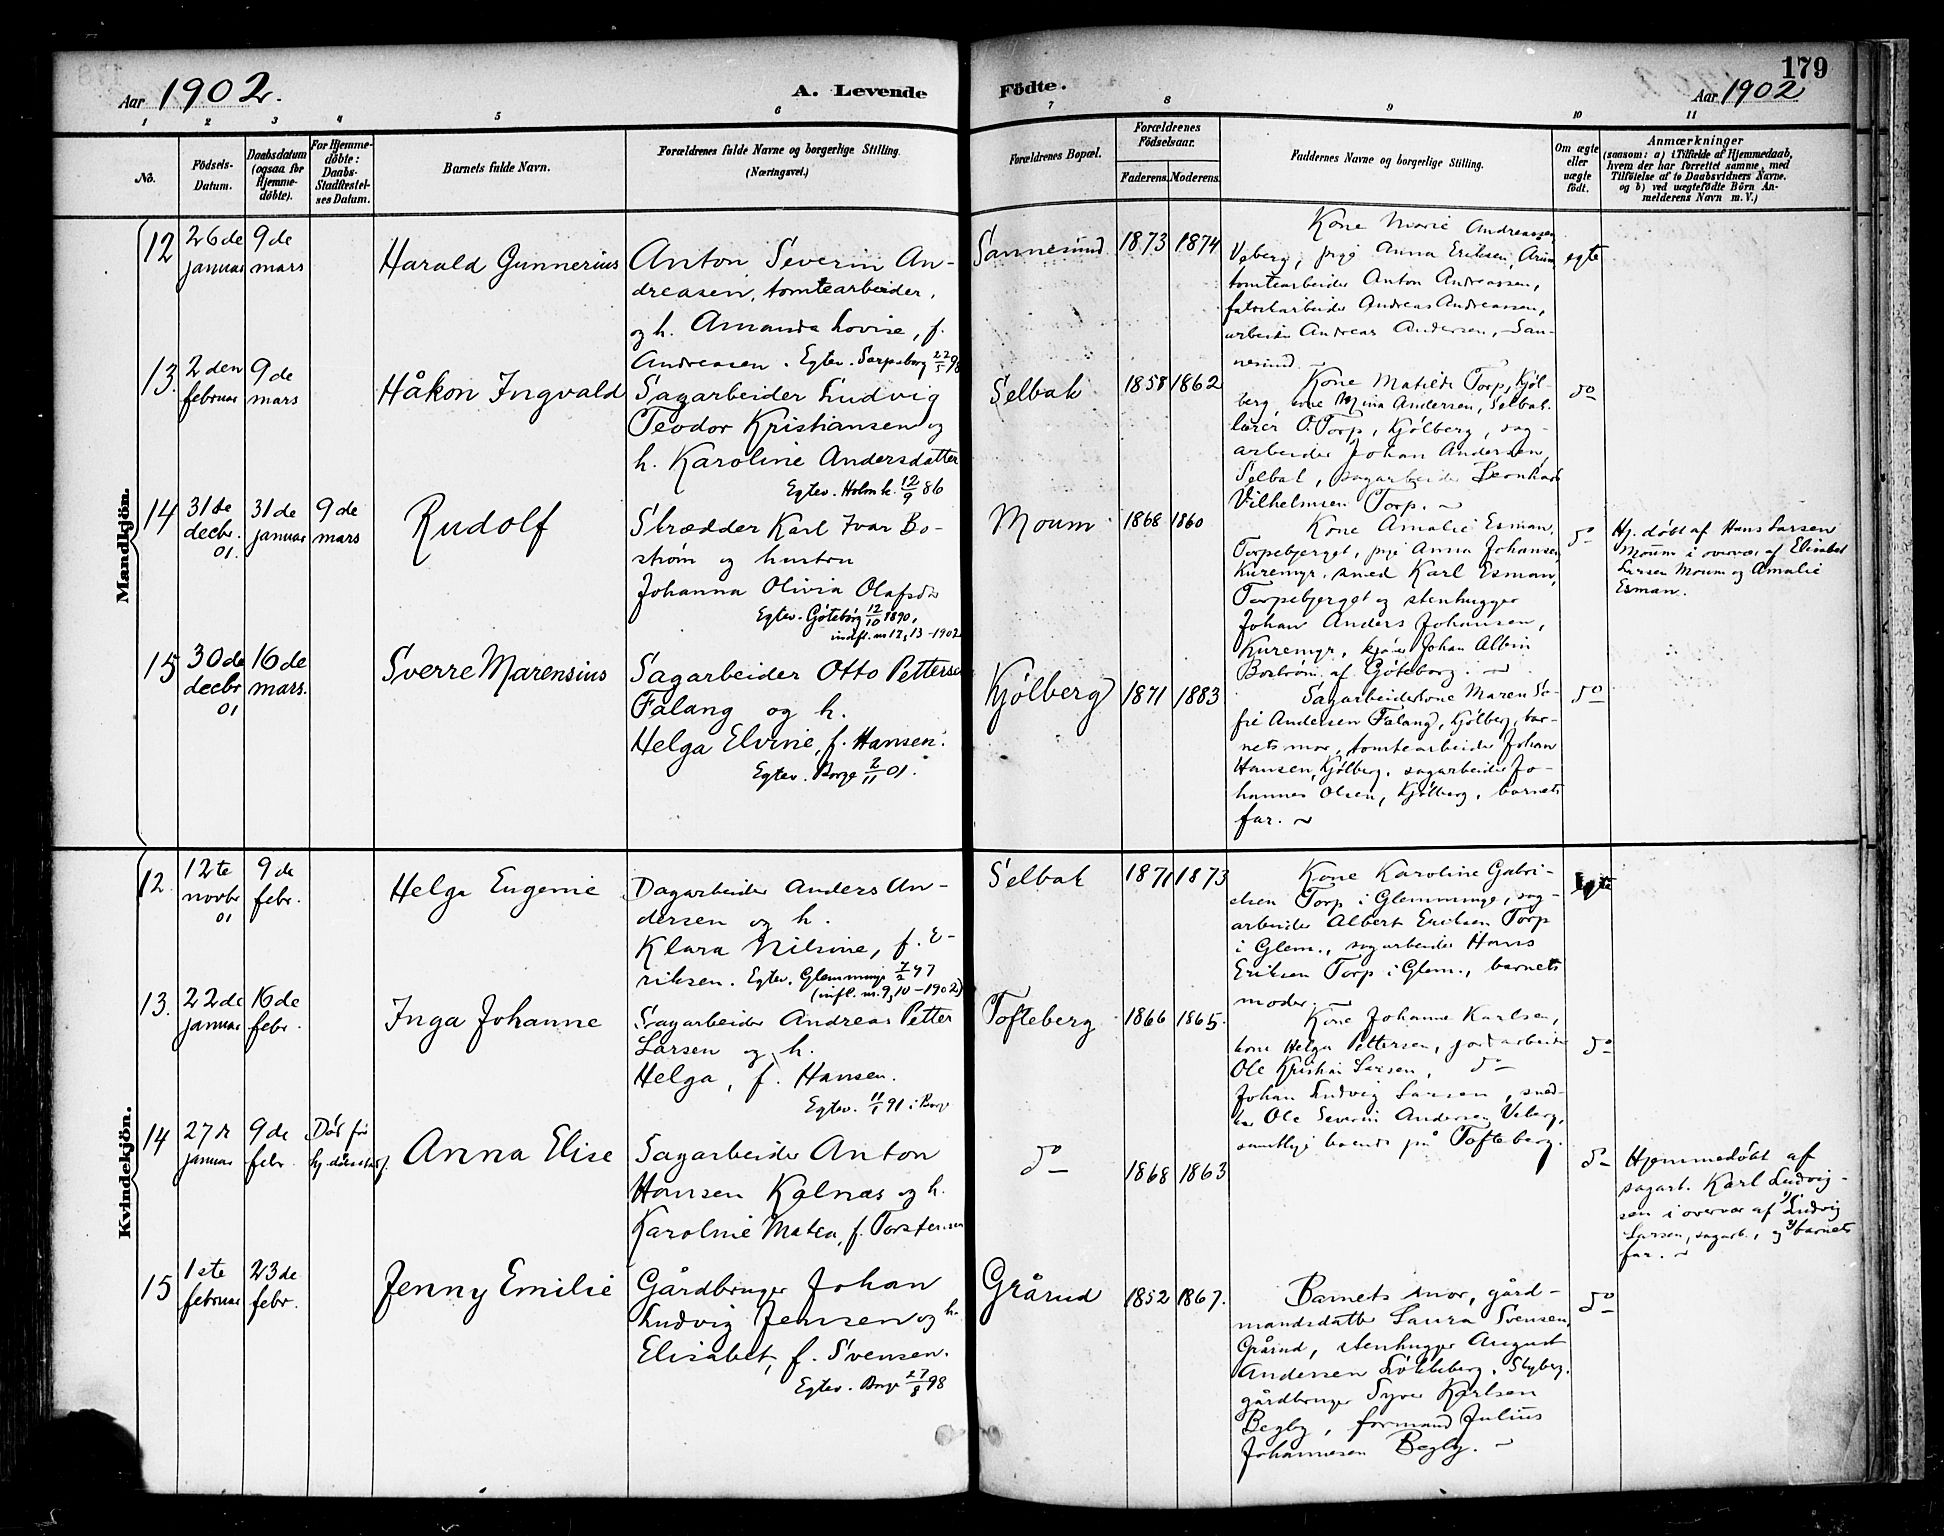 Aar 1902.
A. Levende
Födte.
179
Aar 1902
1 2 3 4 5 6 7 8 9 10 11
No.
Födsels-
Datum.
Daabsdatum
(ogsaa for
Hjemme-
döbte).
For Hjemme-
döbte:
Daabs-
Stadfæstel-
ses Datum.
Barnets fulde Navn.
Forældrenes fulde Navne og borgerlige Stilling.
(Næringsvei.)
Forældrenes Bopæl.
Forældrenes
Födselsaar.
Faderens. Moderens.
Faddernes Navne og borgerlige Stilling.
Om ægte
eller
uægte
født.
Anmærkninger
(saasom: a) i Tilfælde af Hjemmedaab,
hvem der har forrettet samme, med
Tilföielse af to Daabsvidners Navne.
og b) ved uægtefödte Börn An-
melderens Navn m. V.)
Mandkjön.
12
26de
januar
9de
mars
Harald Gunnerius
Anton Severin An-
dreasen, tomtearbeider,
og h. Amanda Lovise, f.
Andreassen. Egtev. Sarpsborg 22/5 98
Sannesund
1873 1874
Kone Marie Andreassen
Veberg, pige Anna Eriksen,
tomtearbeider Anton Andreassen,
fabrikarbeider Andreas Andreassen,
arbeider Andreas Andersen, San-
nesund
egte
13.
2den
februar
9de
mars
Håkon Ingvald
Sagarbeider Ludvig
Teodor Kristiansen og
h. Karoline Andersdatter
Egtev. Holm k. 12/9 86
Selbak
1858 1862
Kone Matilde Torp, Kjøl-
berg, kone Mina Andersen, Selbak.
lærer O. Torp, Kjølberg, sag-
arbeider Johan Andersen,
Selbak, sagarbeider Leonhard
Vilhelmsen Torp.
do
14
31de
decbr.
01.
31de
januar
9de
mars
Rudolf
Skrædder Karl Ivar Bo-
strøm og hustru
Johanna Olivia Olafsdtr
Egtev. Göteborg 12/10 1890,
indfl. nr 12, 13 - 1902
Moum
1868 1860
Kone Amalie Esman,
Torpebjerget, pige Anna Johansen
Kuremyr, smed Karl Esman,
Torpebjerget og stenhugger
Johan Anders Johansen,
Kuremyr, Johan Albin
Boström af Göteborg.
do
Hj. døbt af Hans Larsen
Moum i overvær af Elisabet
Larsen Moum og Amalie
Esman.
15
30de
decbr
01
16de
mars.
Sverre Marensius
Sagarbeider Otto Pettersen
Falang og h.
Helga Elvine, f. Hansen.
Egtev. Borge 2/11 01.
Kjølberg
1871 1883
Sagarbeiderkone Maren So-
fie Andersen Falang, Kjølberg, bar-
nets mor, tomtearbeider Johan
Hansen, Kjølberg, sagarbeider Jo-
hannes Olsen, Kjølberg, barnets
far.
do
Kvindekjön.
12.
12te
novbr
01
9de
febr.
Helga Eugenie
Dagarbeider Anders An-
dersen og h.
Klara Nilsine, f. E-
riksen. Egtev. Glemminge 7/2 97
(infl. nr. 9, 10 - 1902)
Selbak
1871 1873
Kone Karoline Gabri-
elsen Torp i Glemminge, sag-
arbeider Albert Eriksen Torp
i Glem., sagarbeider Hans
Eriksen Torp i Glem., barnets
moder.
Egte
13.
22de
januar
16de
febr.
Inga Johanne
Sagarbeider Andreas Petter
Larsen og h.
Helga, f. Hansen.
Egtev. 11/1 91 i Borge
Tofteberg
1866 1865.
Kone Johanne Karlsen,
kone Helga Pettersen, jordarbeider
Ole Kristian Larsen, do
Johan Ludvig Larsen, sned-
ker Ole Severin Andersen Veberg,
samtlige boende på Tofteberg.
do
14
27de
januar
9de
febr.
Død før
hj. dåb stadf.
Anna Elise
Sagarbeider Anton
Hansen Kalnæs og h.
Karoline Matea, f. Torstensen
do
1868 1863
do
Hjemmedøbt af
sagarb. Karl Ludvig-
sen i overvær af 1) Ludvig
Larsen, sagarb., og 2) barnets
far.
15
1ste
februar
23de
febr.
Jenny Emilie
Gårdbruger Johan
Ludvig Jensen og h.
Elisabet, f. Svensen.
Egtev. Borge 27/8 98
Grårud
1852 1867.
Barnets mor, gård-
mandsdatter Laura Svensen,
Grårud, stenhugger August
Andersen
gårdbruger Syver Karlsen
Begby, formand Julius
Johannesen Begby.
do